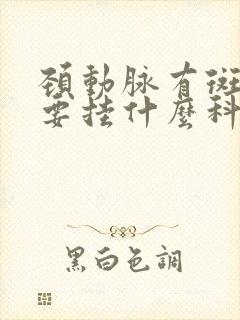 頸動脉有斑
要挂什麽科
黑白色調